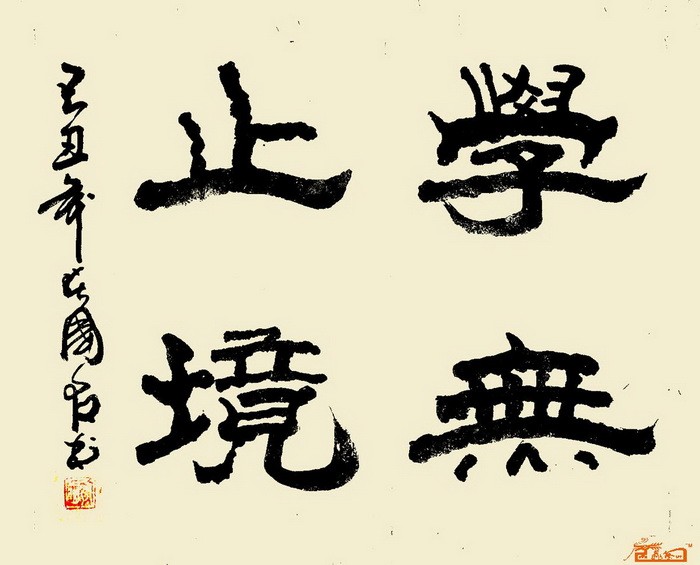 學無
止境
己丑年
國
書